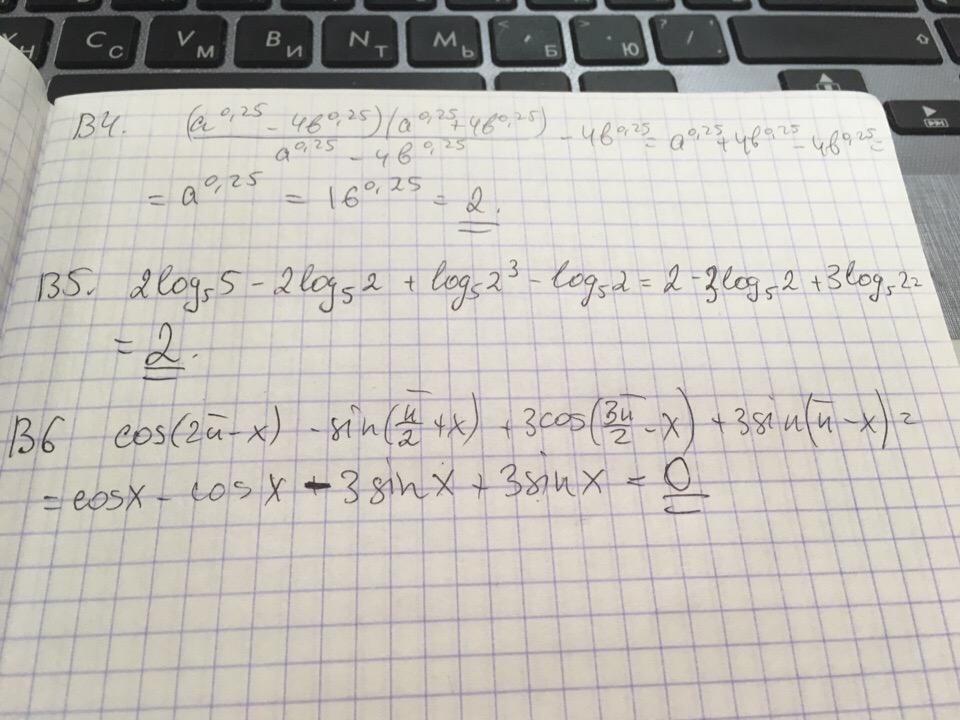 C С V М B И N Т M Ь < , Б > . Ю ? / .
В4. (a^0,25 - 4в^0,25)(a^0,25 + 4в^0,25) / a^0,25 - 4в^0,25 - 4в^0,25 = a^0,25 + 4в^0,25 - 4в^0,25 =
= a^0,25 = 16^0,25 = 2.
В5. 2log₅5 - 2log₅2 + log₅2³ - log₅2 = 2 - 3log₅2 + 3log₅2 =
= 2.
В6 cos(2π - x) - sin(π/2 + x) + 3cos(3π/2 - x) + 3sin(π - x) =
= cosx - cosx - 3sinx + 3sinx = 0